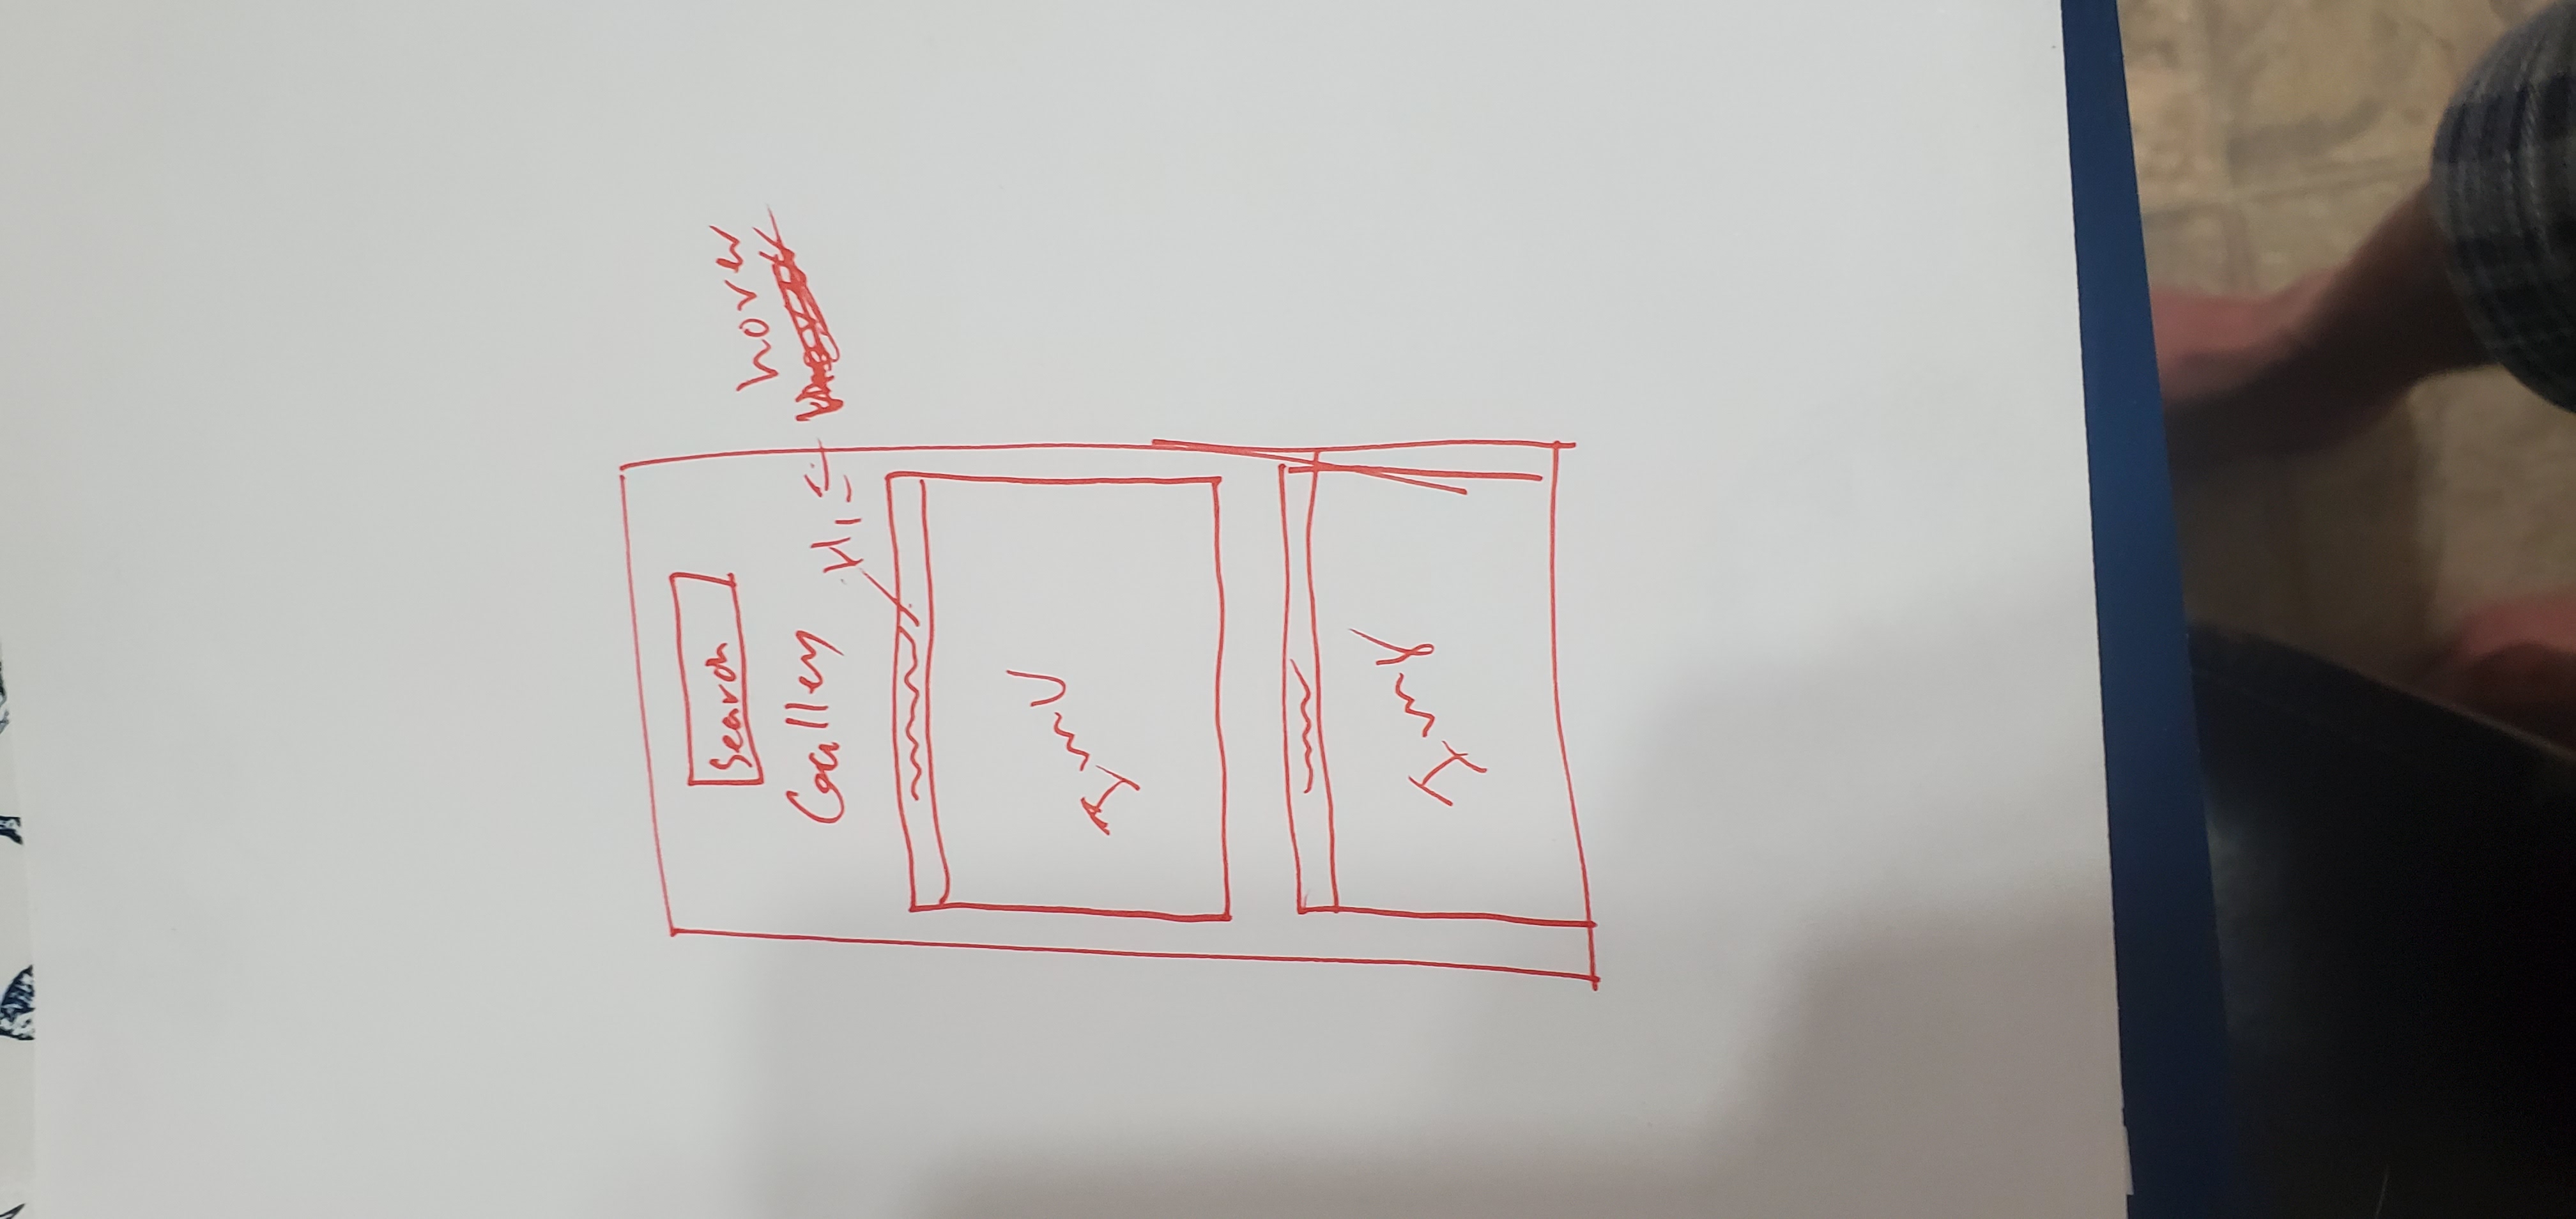 Search
Gallery
hover
H1
Img
Img